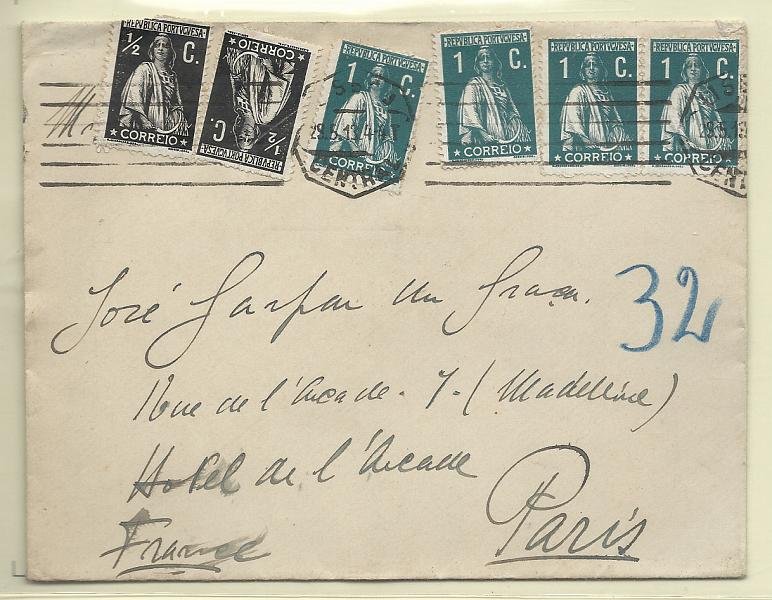 REPVBLICA PORTVGVESA
½ C.
CORREIO
REPVBLICA PORTVGVESA
½ C.
CORREIO
REPVBLICA PORTVGVESA
1 C.
CORREIO
REPVBLICA PORTVGVESA
1 C.
CORREIO
REPVBLICA PORTVGVESA
1 C.
CORREIO
REPVBLICA PORTVGVESA
1 C.
CORREIO
CENTRAL
José Gaspar
32
Rue de l'Arcade. 7. (Madeleine)
Hotel de l'Arcade
Paris
France